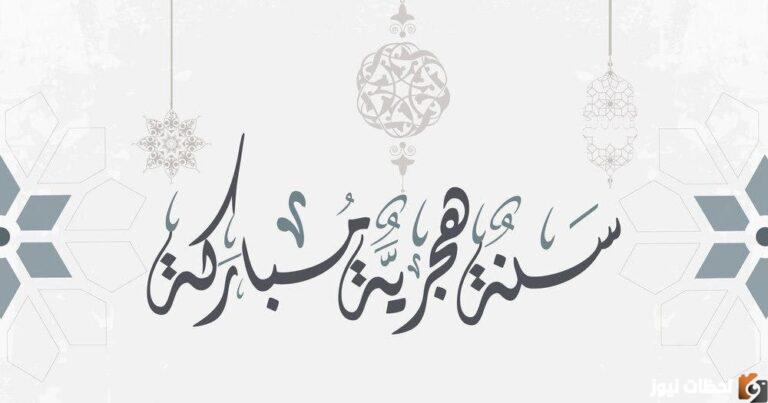 سَنةٌ هجريَّةٌ مُباركَة
لحظات نيوز